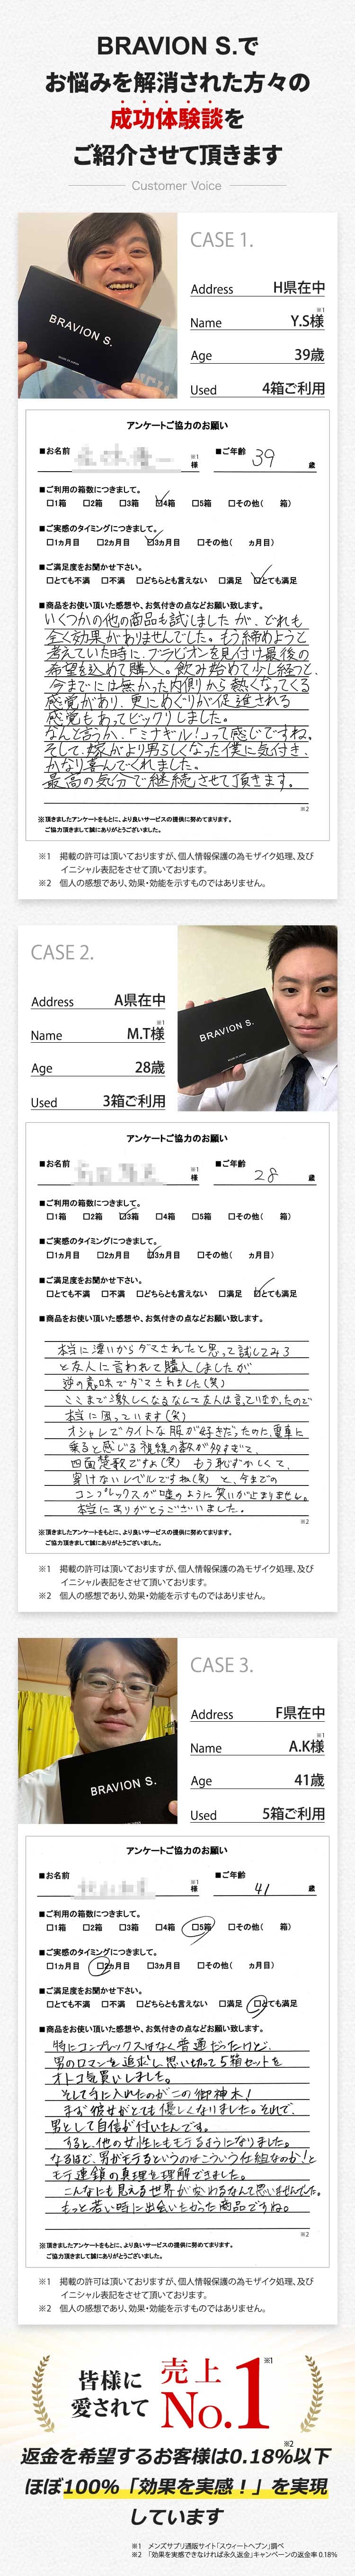 BRAVION S.で
お悩みを解消された方々の
成功体験談を
ご紹介させて頂きます
Customer Voice
BRAVION S.
CASE 1.
Address H県在中
※1
Name Y.S様
Age 39歳
Used 4箱ご利用
アンケートご協力のお願い
■お名前 ※1 様 ■ご年齢 39 歳
■ご利用の箱数につきまして。
□1箱 □2箱 □3箱 ☑4箱 □5箱 □その他( 箱)
■ご実感のタイミングにつきまして。
□1ヵ月目 □2ヵ月目 ☑3ヵ月目 □その他( ヵ月目)
■ご満足度をお聞かせ下さい。
□とても不満 □不満 □どちらとも言えない □満足 ☑とても満足
■商品をお使い頂いた感想や、お気付きの点などお願い致します。
いくつかの他の商品も試しましたが、どれも
全く効果がありませんでした。もう諦めようと
考えていた時に、ブラビオンを見付け最後の
希望を込めて購入。飲み始めて少し経つと、
今までには無かった内側から熱くなってくる
感覚があり、更にめぐりが促進される
感覚もあってビックリしました。
なんと言うか、「ミナギル!」って感じですね。
そして、嫁がより男らしくなった僕に気付き、
かなり喜んでくれました。
最高の気分で継続させて頂きます。
※2
※頂きましたアンケートをもとに、より良いサービスの提供に努めてまります。
ご協力頂きまして誠にありがとうございました。
※1 掲載の許可は頂いておりますが、個人情報保護の為モザイク処理、及び
イニシャル表記をさせて頂いております。
※2 個人の感想であり、効果・効能を示すものではありません。
CASE 2.
Address A県在中
※1
Name M.T様
Age 28歳
Used 3箱ご利用
BRAVION S.
アンケートご協力のお願い
■お名前 ※1 様 ■ご年齢 28 歳
■ご利用の箱数につきまして。
□1箱 □2箱 ☑3箱 □4箱 □5箱 □その他( 箱)
■ご実感のタイミングにつきまして。
□1ヵ月目 □2ヵ月目 ☑3ヵ月目 □その他( ヵ月目)
■ご満足度をお聞かせ下さい。
□とても不満 □不満 □どちらとも言えない □満足 ☑とても満足
■商品をお使い頂いた感想や、お気付きの点などお願い致します。
本当に凄いからダマされたと思って試してみろ
と友人に言われて購入しましたが、
逆の意味でダマされました(笑)
ここまで激しくなるなんて友人は言っていなかったので
本当に困っています(笑)
オシャレでタイトな服が好きだったのに、電車に
乗ると感じる視線の数が多すぎて、
四面楚歌ですよ(笑) もう恥ずかしくて、
穿けないレベルですね(笑) と、今までの
コンプレックスが嘘のように笑いが止まりません。
本当にありがとうございました。
※2
※頂きましたアンケートをもとに、より良いサービスの提供に努めてまります。
ご協力頂きまして誠にありがとうございました。
※1 掲載の許可は頂いておりますが、個人情報保護の為モザイク処理、及び
イニシャル表記をさせて頂いております。
※2 個人の感想であり、効果・効能を示すものではありません。
BRAVION S.
CASE 3.
Address F県在中
※1
Name A.K様
Age 41歳
Used 5箱ご利用
アンケートご協力のお願い
■お名前 ※1 様 ■ご年齢 41 歳
■ご利用の箱数につきまして。
□1箱 □2箱 □3箱 □4箱 □5箱 □その他( 箱)
■ご実感のタイミングにつきまして。
□1ヵ月目 □2ヵ月目 □3ヵ月目 □その他( ヵ月目)
■ご満足度をお聞かせ下さい。
□とても不満 □不満 □どちらとも言えない □満足 □とても満足
■商品をお使い頂いた感想や、お気付きの点などお願い致します。
特にコンプレックスはなく普通だったけど、
男のロマンを追求し思い切って5箱セットを
オトコ気買いしました。
そして手に入れたのがこの御神木!
まず彼女がとても優しくなりました。それで、
男として自信が付いたんです。
すると、他の女性にもモテるようになりました。
なるほど、男がモテるというのはこういう仕組なのか!と
モテ連鎖の真理を理解できました。
こんなにも見える世界が変わるなんて思いませんでした。
もっと若い時に出会いたかった商品ですね。
※2
※頂きましたアンケートをもとに、より良いサービスの提供に努めてまります。
ご協力頂きまして誠にありがとうございました。
※1 掲載の許可は頂いておりますが、個人情報保護の為モザイク処理、及び
イニシャル表記をさせて頂いております。
※2 個人の感想であり、効果・効能を示すものではありません。
皆様に愛されて 売上No.1 ※1
※2
返金を希望するお客様は0.18%以下
ほぼ100%「効果を実感！」を実現
しています
※1 メンズサプリ通販サイト「スウィートヘブン」調べ
※2 「効果を実感できなければ永久返金」キャンペーンの返金率 0.18%